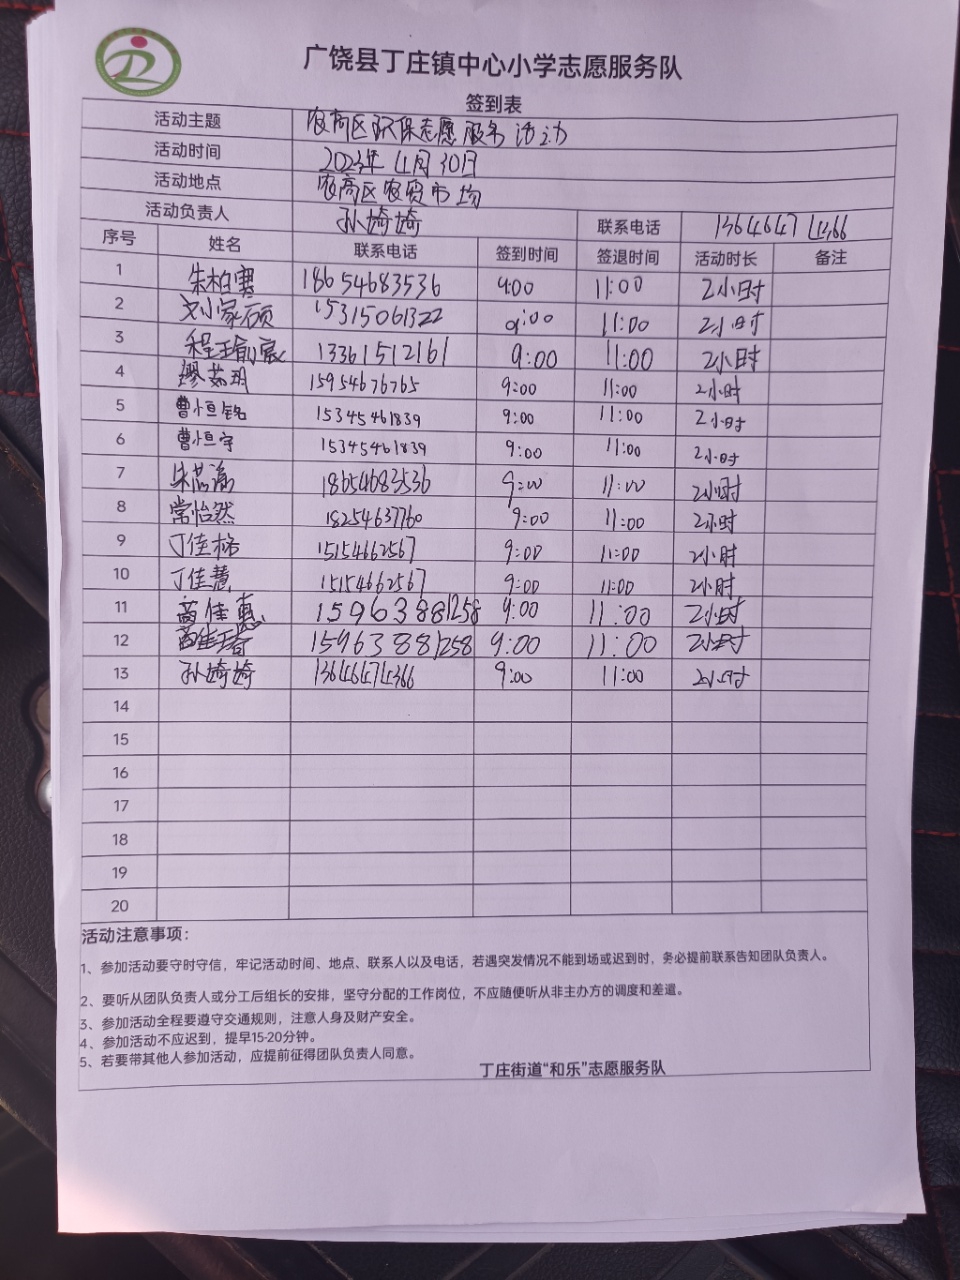 广饶县丁庄镇中心小学志愿服务队
签到表
活动主题 农高区环保志愿服务活动
活动时间 2023年4月30日
活动地点 农高区农贸市场
活动负责人 孙婍婍 联系电话 13646474366
序号 姓名 联系电话 签到时间 签退时间 活动时长 备注
1 朱柏骞 18654683536 9:00 11:00 2小时
2 刘家硕 15315061322 9:00 11:00 2小时
3 程瑜宸 13361512161 9:00 11:00 2小时
4 缪茹玥 15954676765 9:00 11:00 2小时
5 曹恒铭 15345461839 9:00 11:00 2小时
6 曹恒宇 15345461839 9:00 11:00 2小时
7 朱 18654683536 9:00 11:00 2小时
8 常怡然 18254637760 9:00 11:00 2小时
9 丁佳 15154662567 9:00 11:00 2小时
10 丁佳慧 15154662567 9:00 11:00 2小时
11 苗佳惠 15963881258 9:00 11:00 2小时
12 苗佳 15963881258 9:00 11:00 2小时
13 孙婍婍 13646474366 9:00 11:00 2小时
14
15
16
17
18
19
20
活动注意事项：
1、参加活动要守时守信，牢记活动时间、地点、联系人以及电话，若遇突发情况不能到场或迟到时，务必提前联系告知团队负责人。
2、要听从团队负责人或分工后组长的安排，坚守分配的工作岗位，不应随便听从非主办方的调度和差遣。
3、参加活动全程要遵守交通规则，注意人身及财产安全。
4、参加活动不应迟到，提早15-20分钟。
5、若要带其他人参加活动，应提前征得团队负责人同意。
丁庄街道“和乐”志愿服务队